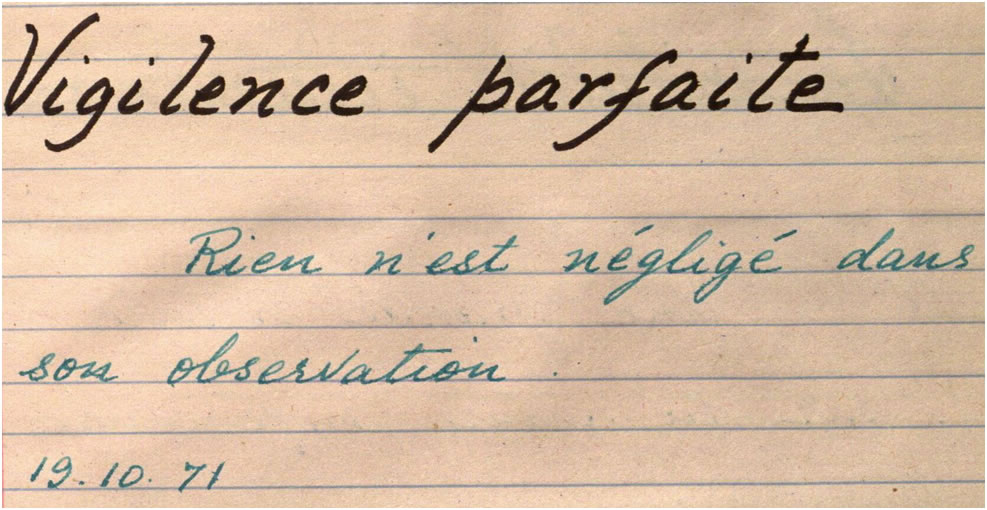 Vigilence parfaite
Rien n'est négligé dans
son observation.
19.10.71